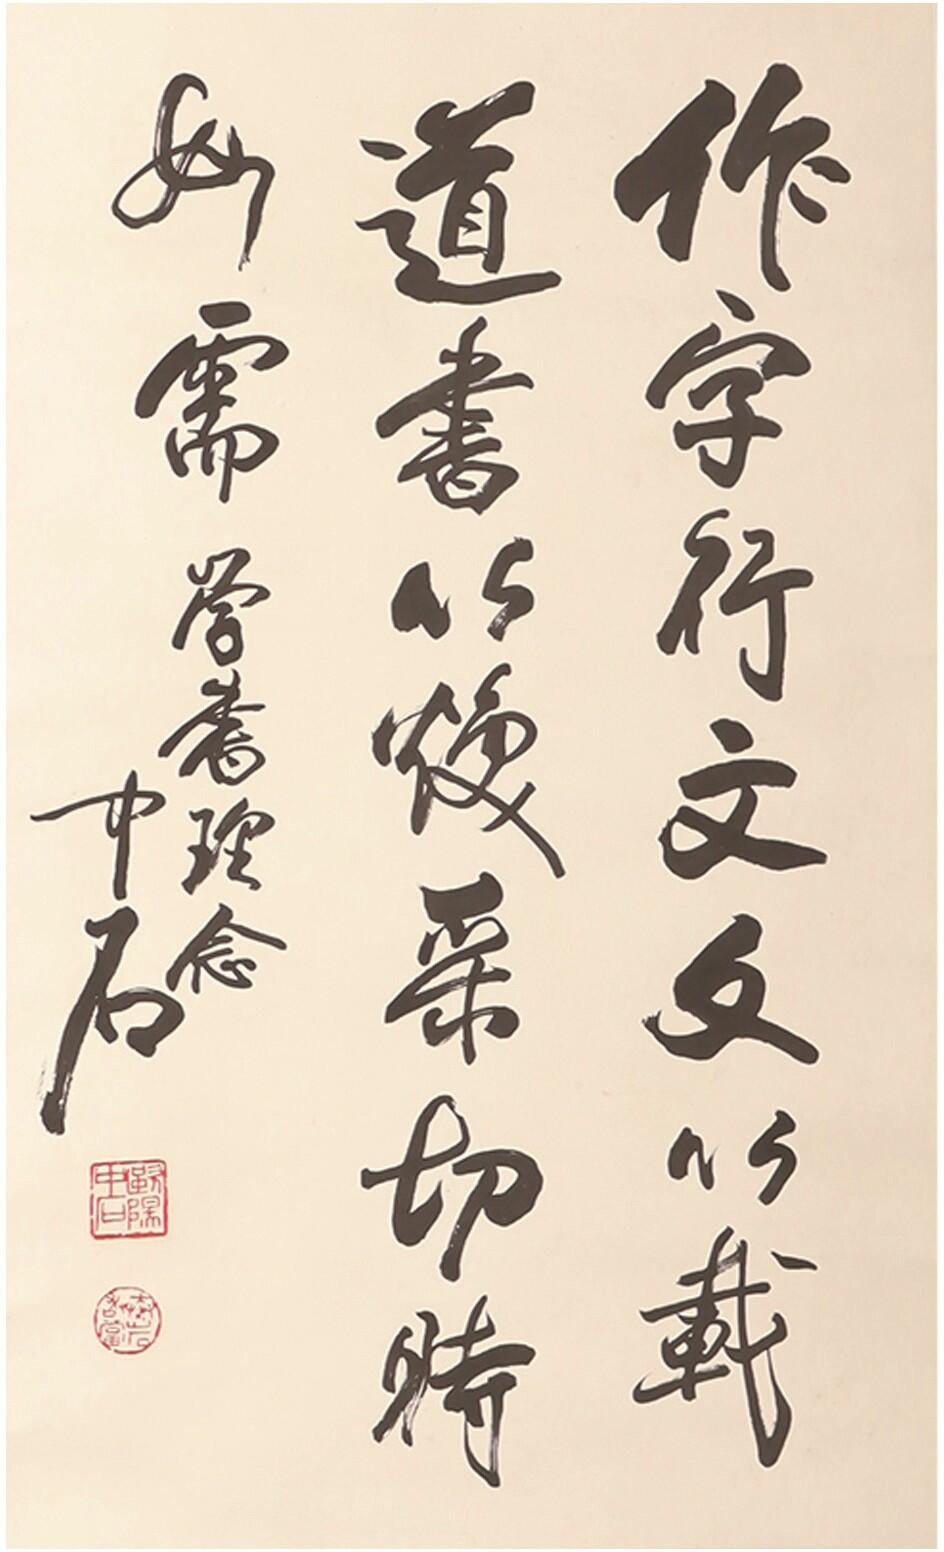 作字行文文以載
道書以煥采切時
如需
學書理念
中石
歐陽中石